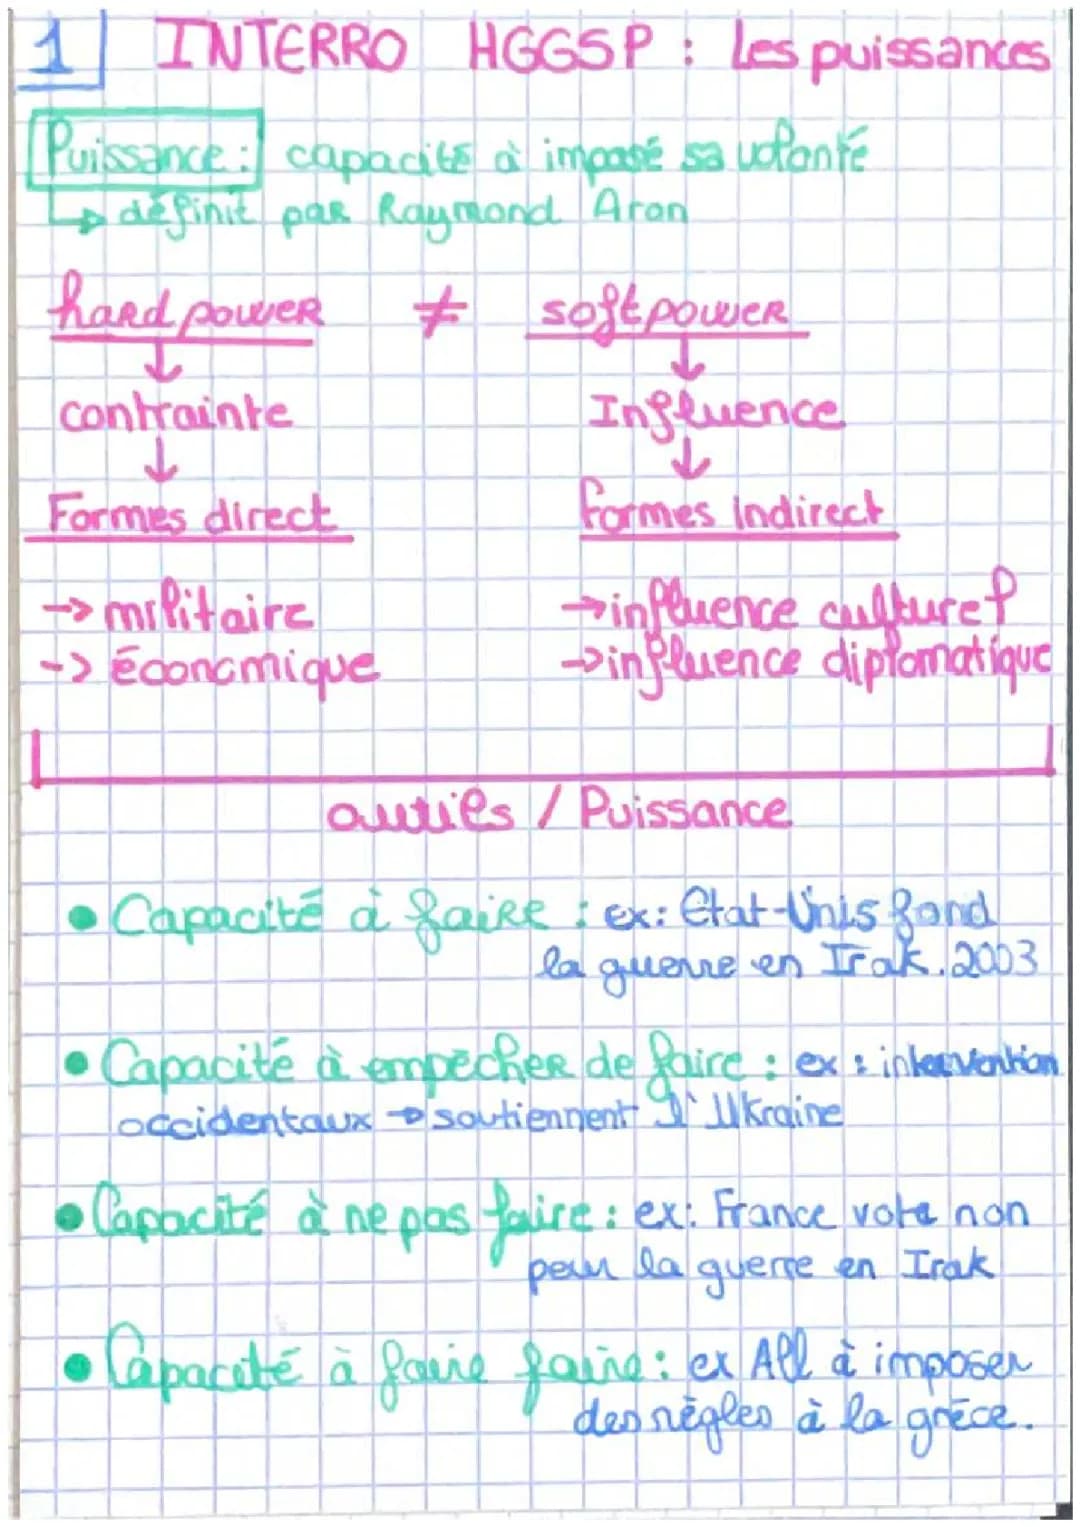 1 INTERRO HGGSP : Les puissances
Puissance : capacité à imposé sa volonté
↳ définit par Raymond Aron
hard power ≠ soft power
↓ ↓
contrainte Influence
↓ ↓
Formes direct formes indirect
-> militaire → influence culturel
-> économique → influence diplomatique
outils / Puissance
• Capacité à faire : ex: Etat-Unis fond
la guerre en Irak. 2003
• Capacité à empêcher de faire : ex : intervention
occidentaux → soutiennent l'Ukraine
• Capacité à ne pas faire : ex: France vote non
pour la guerre en Irak
• Capacité à faire faire : ex All à imposer
des règles à la grèce.